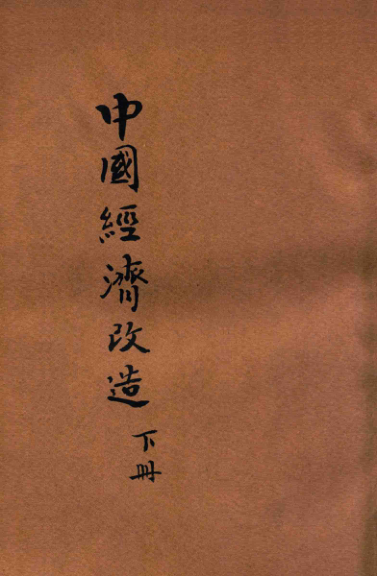 中國經濟改造
下冊